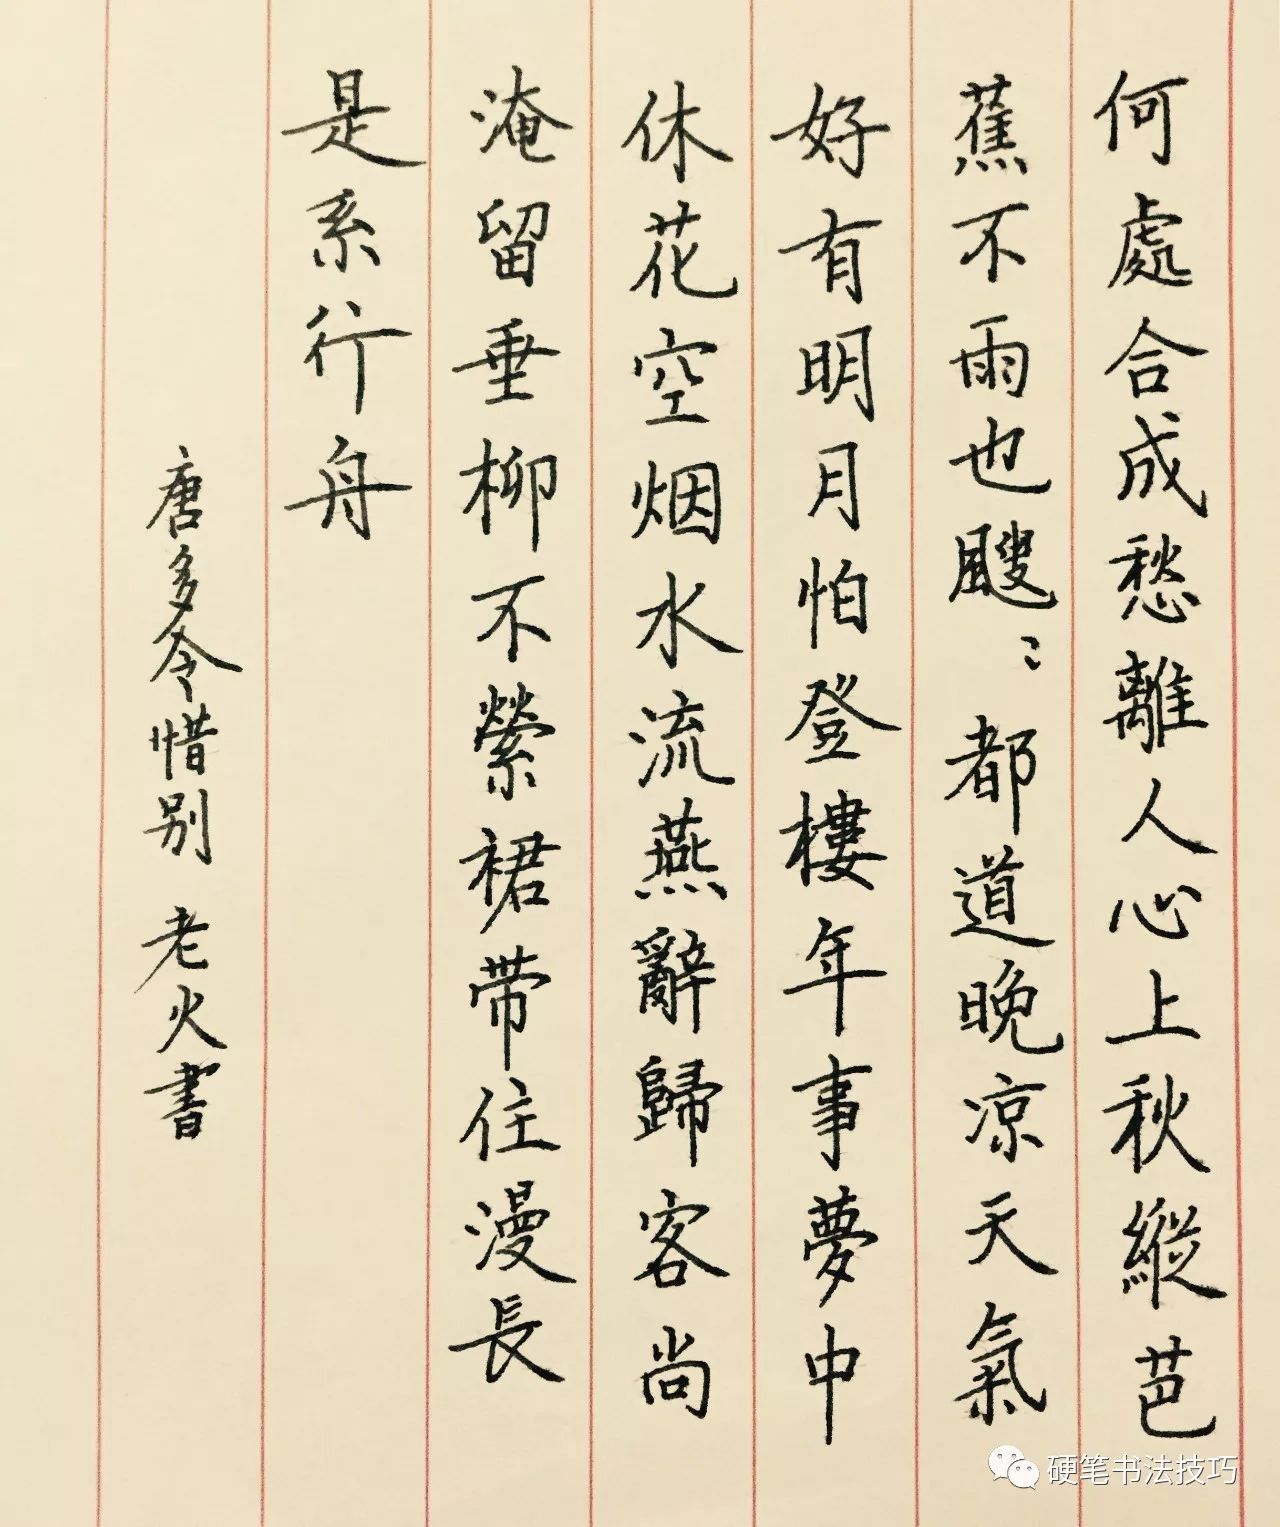 何處合成愁離人心上秋縱芭
蕉不雨也颼〻都道晚凉天氣
好有明月怕登樓年事夢中
休花空烟水流燕辭歸客尚
淹留垂柳不縈裙带住漫長
是系行舟
唐多令惜别 老火書
硬笔书法技巧